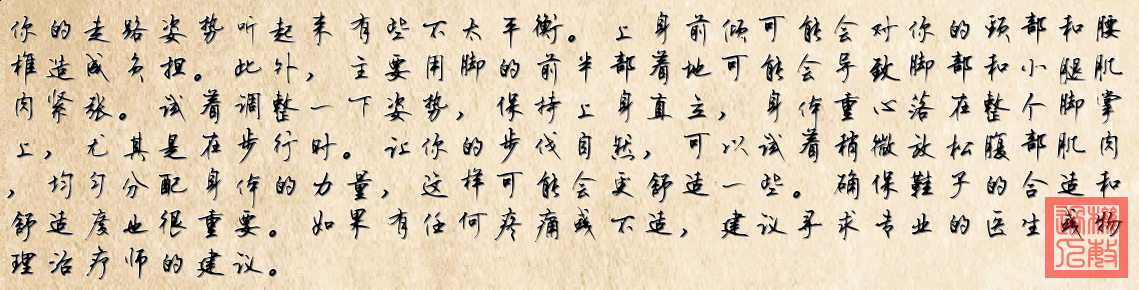 你的走路姿势听起来有些不太平衡。上身前倾可能会对你的颈部和腰
椎造成负担。此外，主要用脚的前半部着地可能会导致脚部和小腿肌
肉紧张。试着调整一下姿势，保持上身直立，身体重心落在整个脚掌
上，尤其是在步行时。让你的步伐自然，可以试着稍微放松腹部肌肉
，均匀分配身体的力量，这样可能会更舒适一些。确保鞋子的合适和
舒适度也很重要。如果有任何疼痛或不适，建议寻求专业的医生或物
理治疗师的建议。